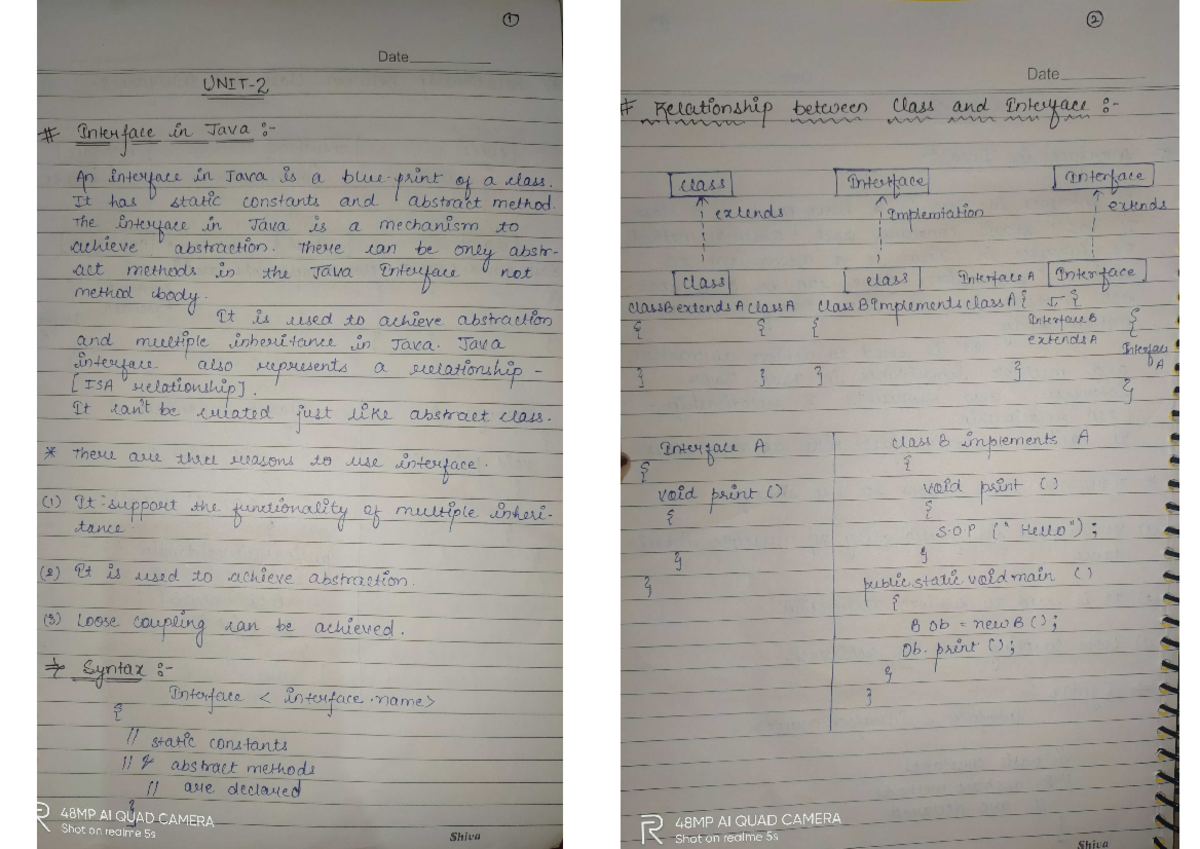 1
Date
UNIT-2
# Interface in Java :-
An interface in Java is a blue-print of a class.
It has static constants and abstract method.
The interface in Java is a mechanism to
achieve abstraction. There can be only abstr-
act methods in the Java Interface not
method body.
It is used to achieve abstraction
and multiple inheritance in Java. Java
interface also represents a relationship -
[ISA relationship].
It can't be created just like abstract class.
* There are three reasons to use interface.
(1) It support the functionality of multiple inheri-
tance.
(2) It is used to achieve abstraction.
(3) Loose coupling can be achieved.
Syntax :-
Interface < interface name>
{
// static constants
// & abstract methods
// are declared
}
48MP AI QUAD CAMERA
Shot on realme 5s
Shiva
2
Date
# Relationship between Class and Interface :-
class Interface Interface
extends Implemtation extends
class class Interface A Interface
class B extends A class A class B Implements class A { I {
{ { { Interface B {
extends A Interface
} } } } A
}
Interface A
{
void print ()
{
}
}
class B implements A
{
void print ()
{
S.O.P (" Hello");
}
public static void main ()
{
B Ob = new B ();
Ob. print ();
}
}
48MP AI QUAD CAMERA
Shot on realme 5s
Shiva